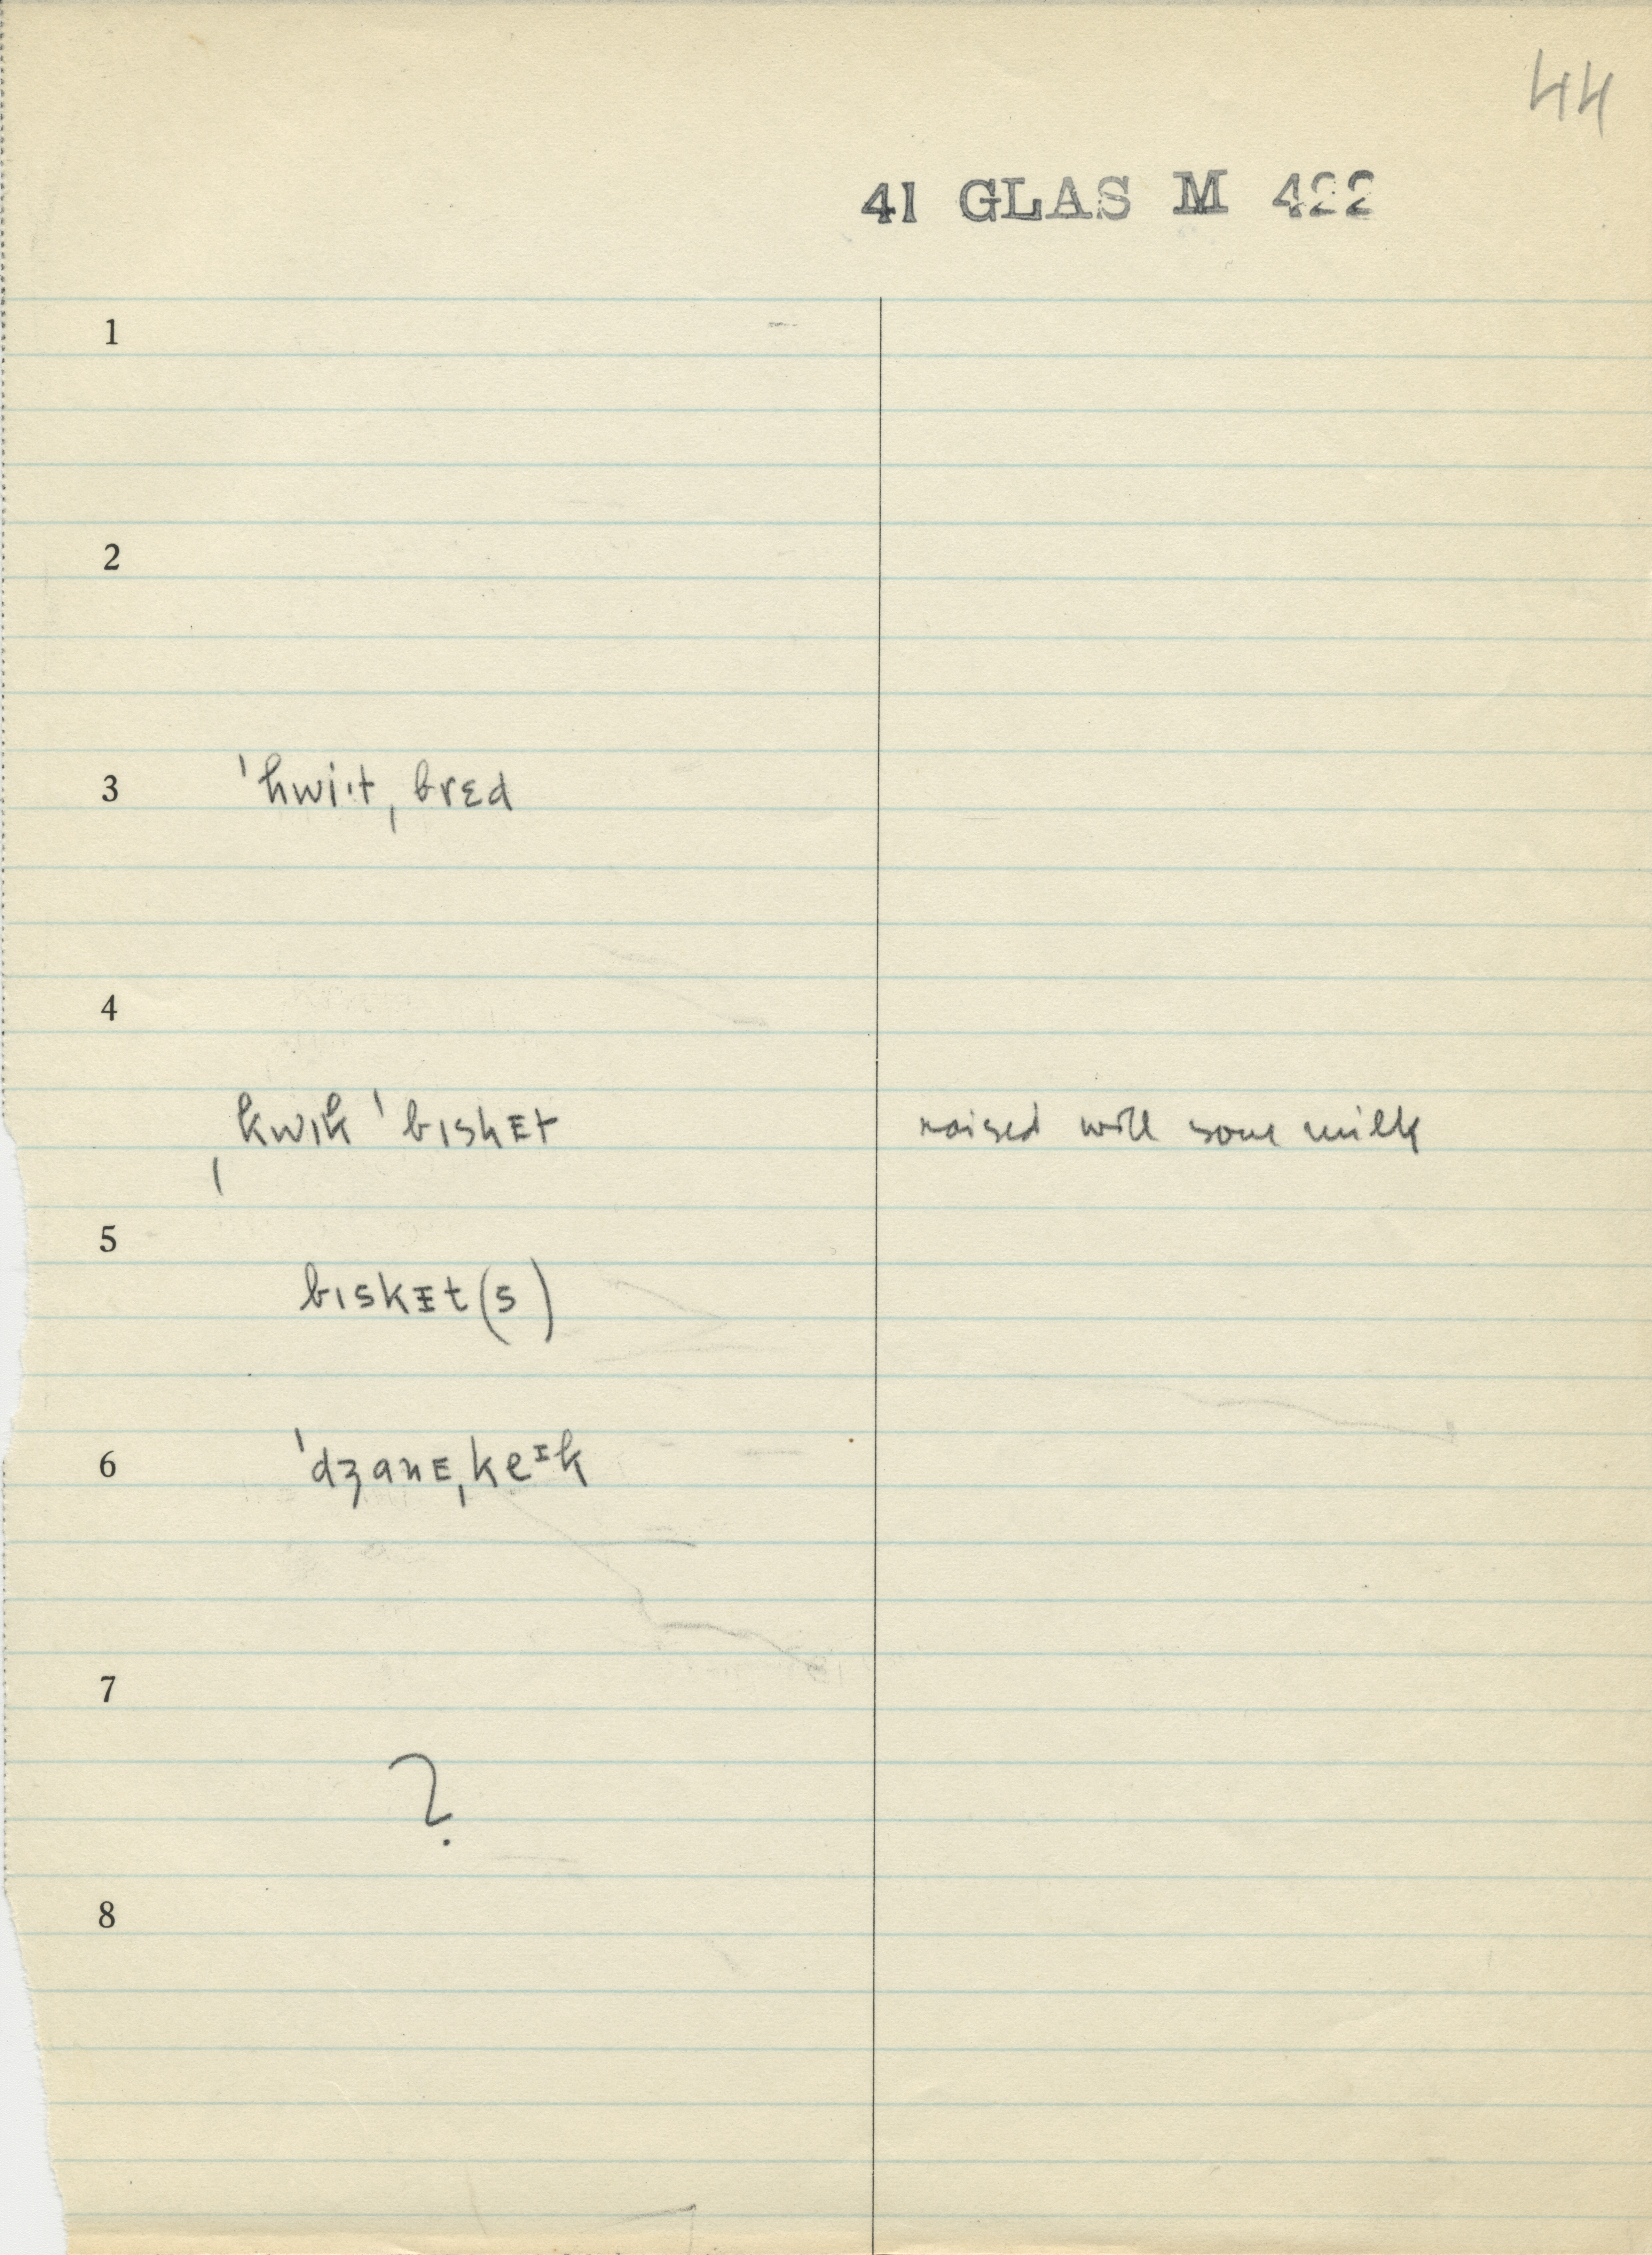 44
41 GLAS M 422
1
2
3 ˈhwi·t ˌbrɛd
4
ˌkwɪk ˈbɪskᴇt raised with sour milk
5
bɪskɪt(s)
6 ˈdʒanᴇˌkeᶦk
7
?
8